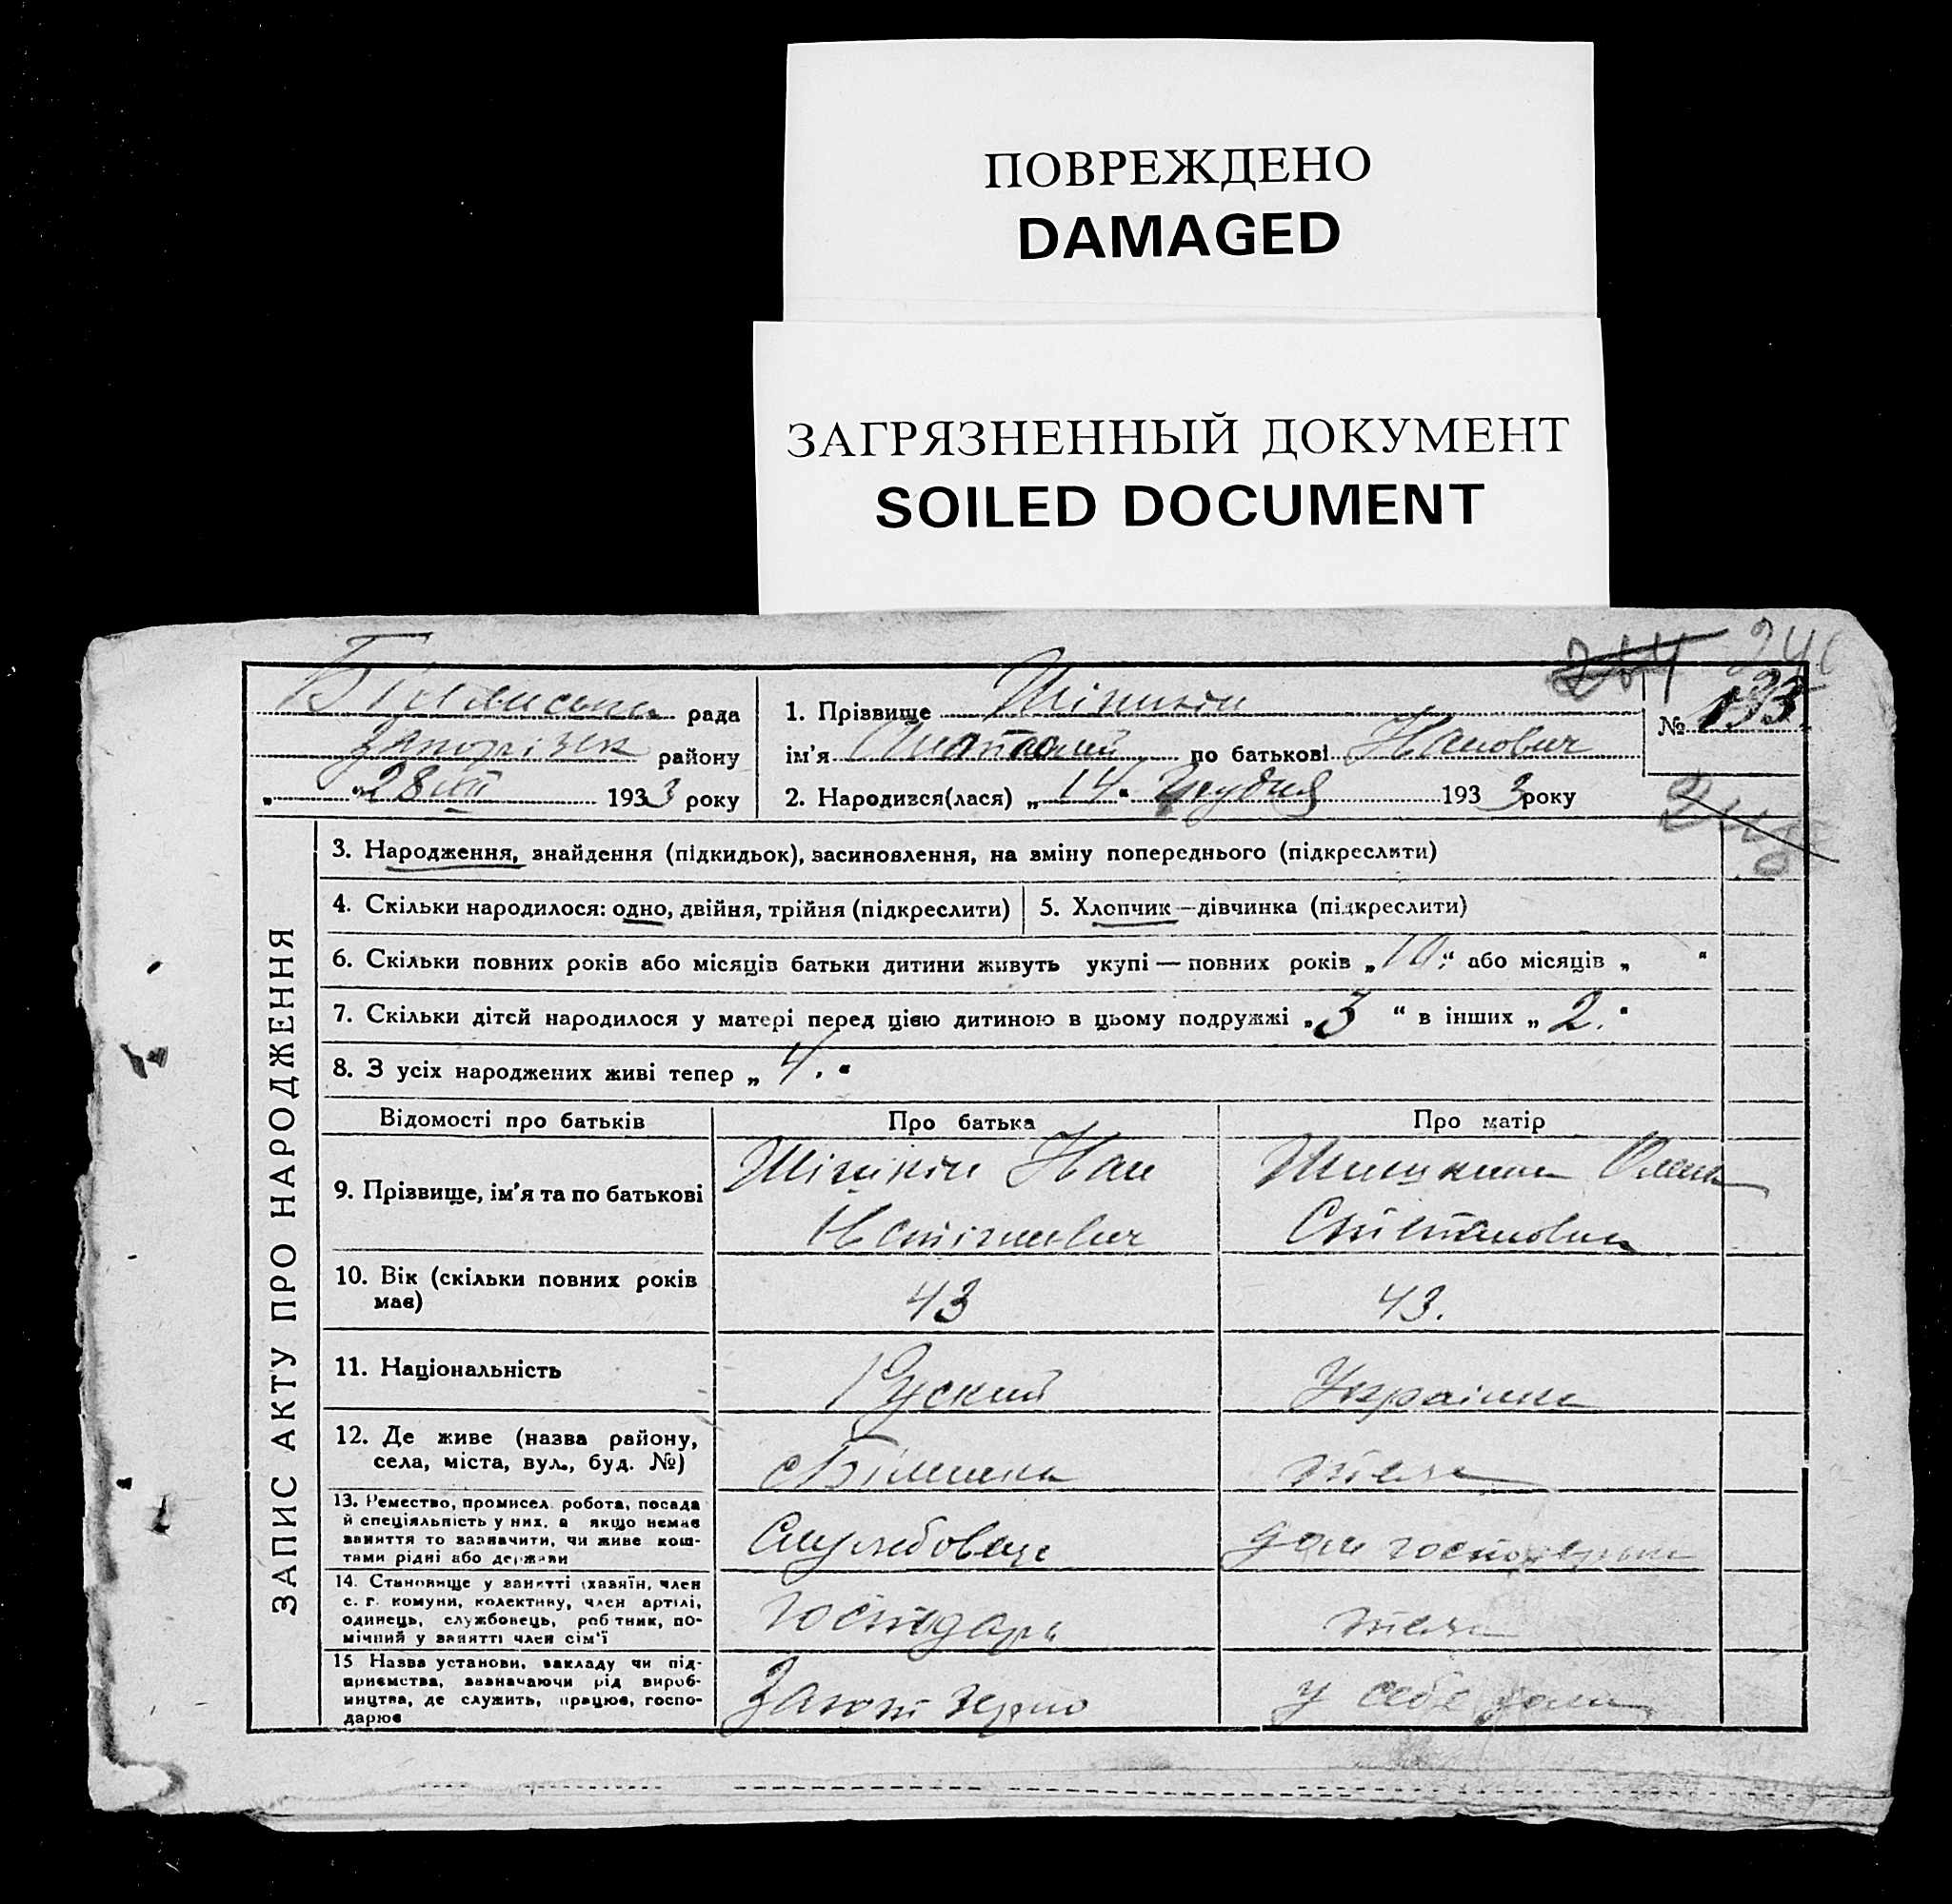 ПОВРЕЖДЕНО
DAMAGED
ЗАГРЯЗНЕННЫЙ ДОКУМЕНТ
SOILED DOCUMENT
рада
району
" " 28 XII 1933 року
1. Прізвище Шишкін
№ 193
ім'я Анатолий по батькові
2. Народився(лася) „14" Грудня 1933 року
3. Народження, знайдення (підкидьок), засиновлення, на зміну попереднього (підкреслити)
4. Скільки народилося: одно, двійня, трійня (підкреслити)
5. Хлопчик—дівчинка (підкреслити)
6. Скільки повних років або місяців батьки дитини живуть укупі — повних років „10." або місяців „ "
7. Скільки дітей народилося у матері перед цією дитиною в цьому подружжі „3 " в інших „2."
8. З усіх народжених живі тепер „4."
ЗАПИС АКТУ ПРО НАРОДЖЕННЯ
Відомості про батьків Про батька Про матір
9. Прізвище, ім'я та по батькові
Шішкін Шишкина Олена
Степановна
10. Вік (скільки повних років
має)
43 43.
11. Національність
Руский Украінка
12. Де живе (назва району,
села, міста, вул., буд. №)
13. Ремество, промисел. робота, посада
й спеціяльність у них, а якщо немає
заняття то зазначити, чи живе кош-
тами рідні або держави
Службовець дом господарка
14. Становище у занятті (хазяїн, член
с. г. комуни, колективу, член артілі,
одинець, службовець, робітник, по-
мічний у занятті член сім'ї
господарь
15 Назва установи, закладу чи під-
приємства, зазначаючи рід вироб-
ництва, де служить, працює, госпо-
дарює
Заготзерно у себе дома